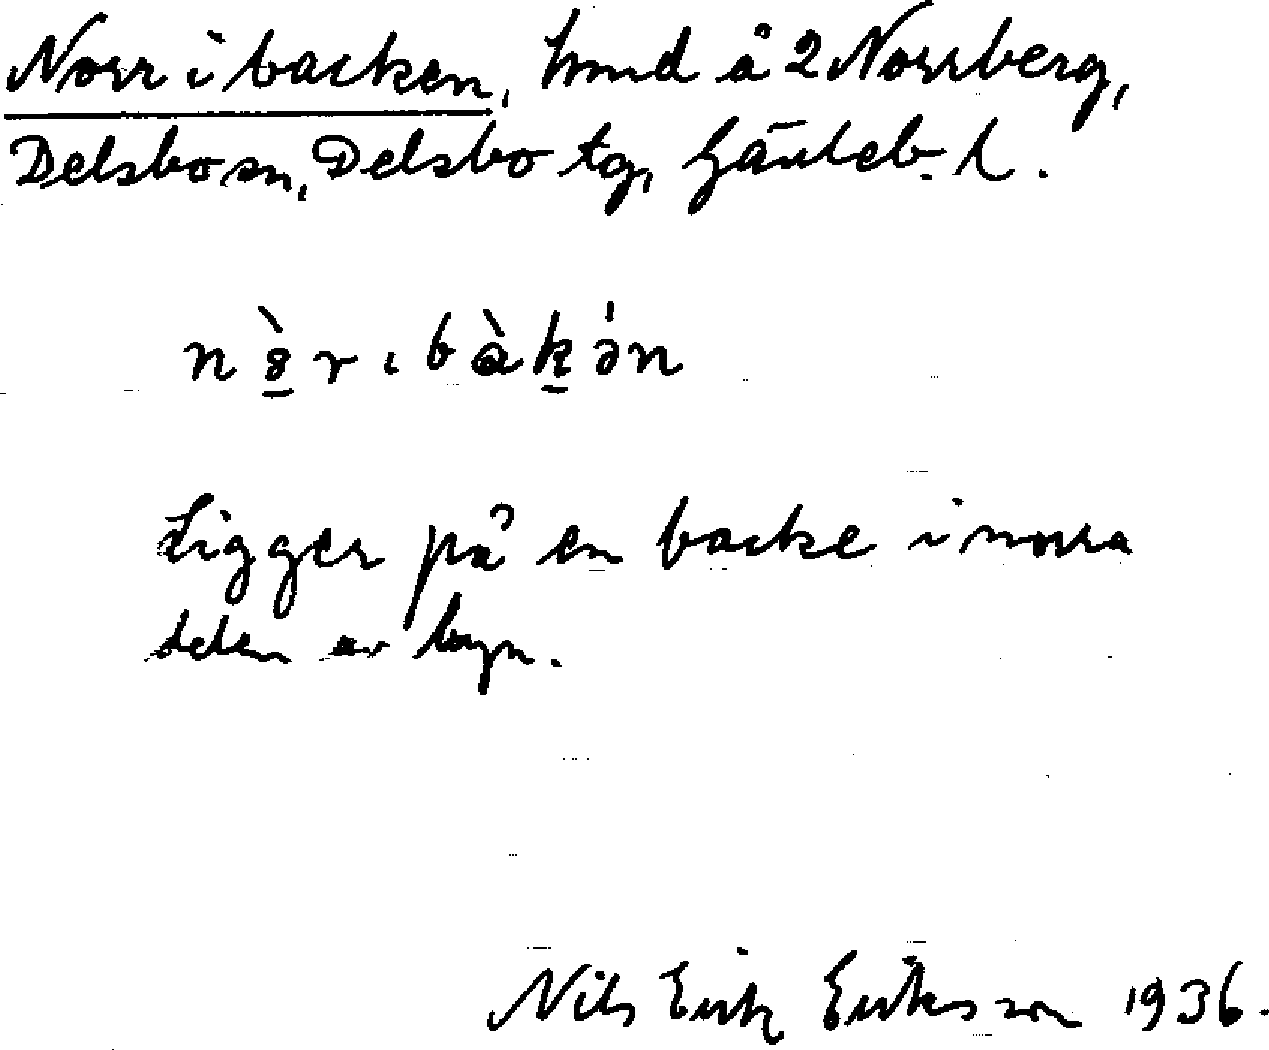 Norr i backen, hmd å 2 Norrberg,
Delsbo sn, Delsbo tg, Gävleb. l.
nə̀rıbàkən
Ligger på en backe i norra
delen av byn.
Nils Erik Eriksson 1936.